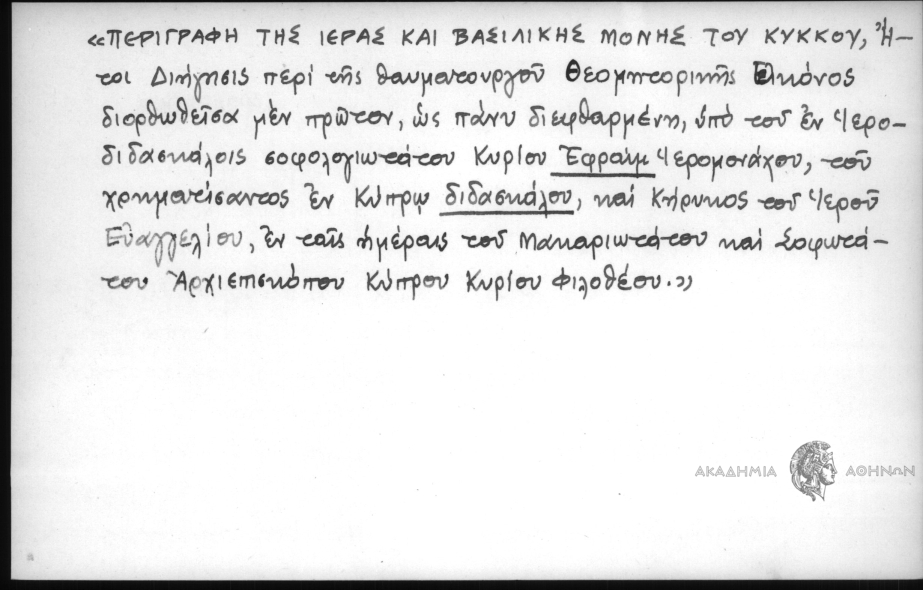 «ΠΕΡΙΓΡΑΦΗ ΤΗΣ ΙΕΡΑΣ ΚΑΙ ΒΑΣΙΛΙΚΗΣ ΜΟΝΗΣ ΤΟΥ ΚΥΚΚΟΥ, Ἤ-
τοι Διήγησις περί τῆς θαυματουργοῦ Θεομητορικῆς Εἰκόνος
διορθωθεῖσα μὲν πρῶτον, ὡς πάνυ διεφθαρμένη, ὑπό τοῦ ἐν Ἱερο-
διδασκάλοις σοφολογιωτάτου Κυρίου Ἐφραίμ Ἱερομονάχου, τοῦ
χρηματίσαντος ἐν Κύπρῳ διδασκάλου, καί Κήρυκος τοῦ Ἱεροῦ
Εὐαγγελίου, ἐν ταῖς ἡμέραις τοῦ Μακαριωτάτου καί Σοφωτά-
του Ἀρχιεπισκόπου Κύπρου Κυρίου Φιλοθέου.»
ΑΚΑΔΗΜΙΑ ΑΘΗΝΩΝ